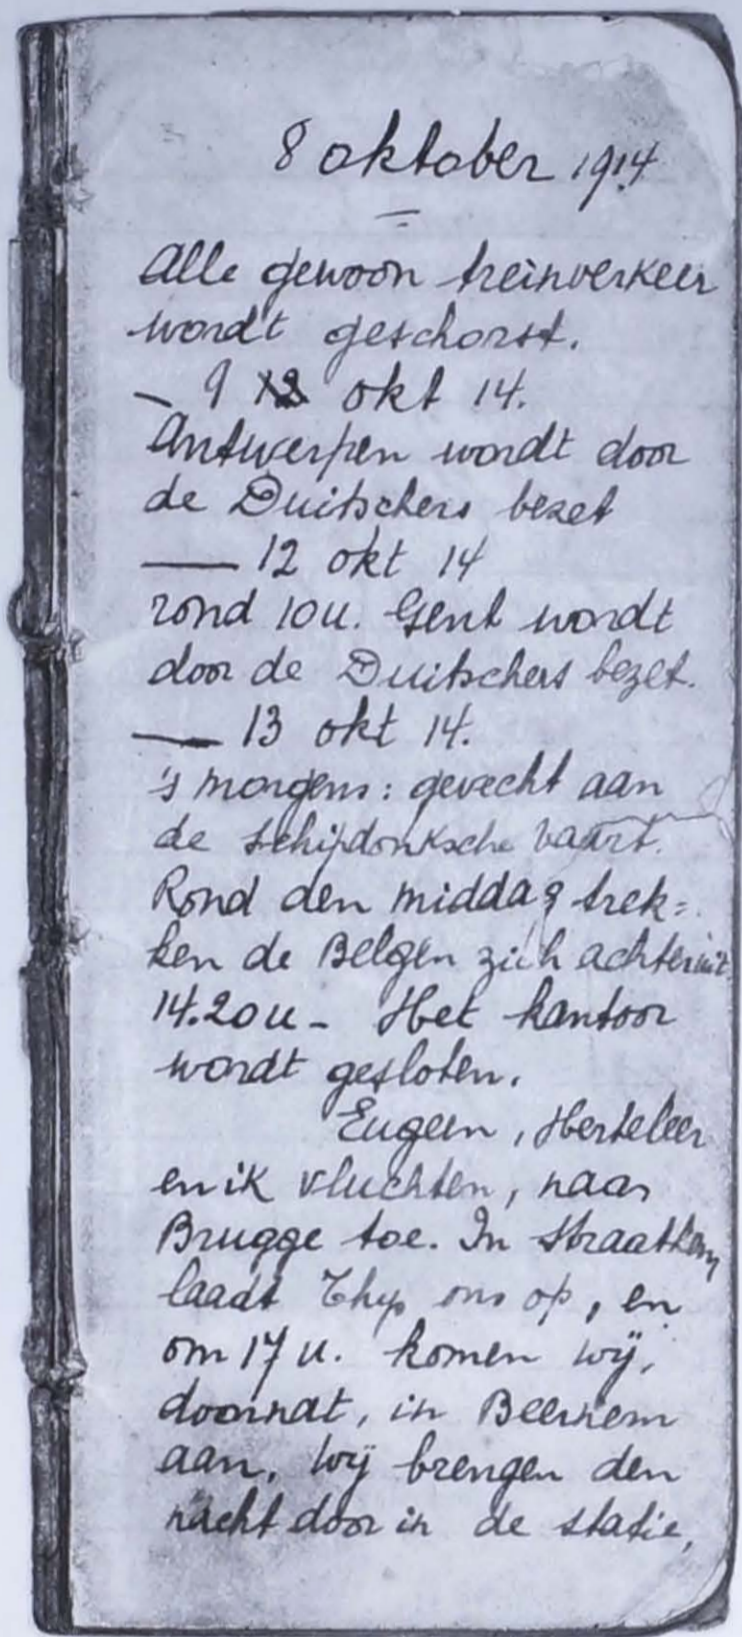 8 oktober 1914
Alle gewoon treinverkeer
wordt geschorst.
— 9 okt 14.
Antwerpen wordt door
de Duitschers bezet
— 12 okt 14
rond 10 u. Gent wordt
door de Duitschers bezet.
— 13 okt 14.
's morgens : gevecht aan
de Schipdonksche vaart.
Rond den middag trek=
ken de Belgen zich achteruit
14.20 u - Het kantoor
wordt gesloten.
Eugeen, Herteleer
en ik vluchten, naar
Brugge toe. In Straatkem
laadt Thys ons op, en
om 17 u. komen wij,
doornat, in Beernem
aan. Wij brengen den
nacht door in de statie,